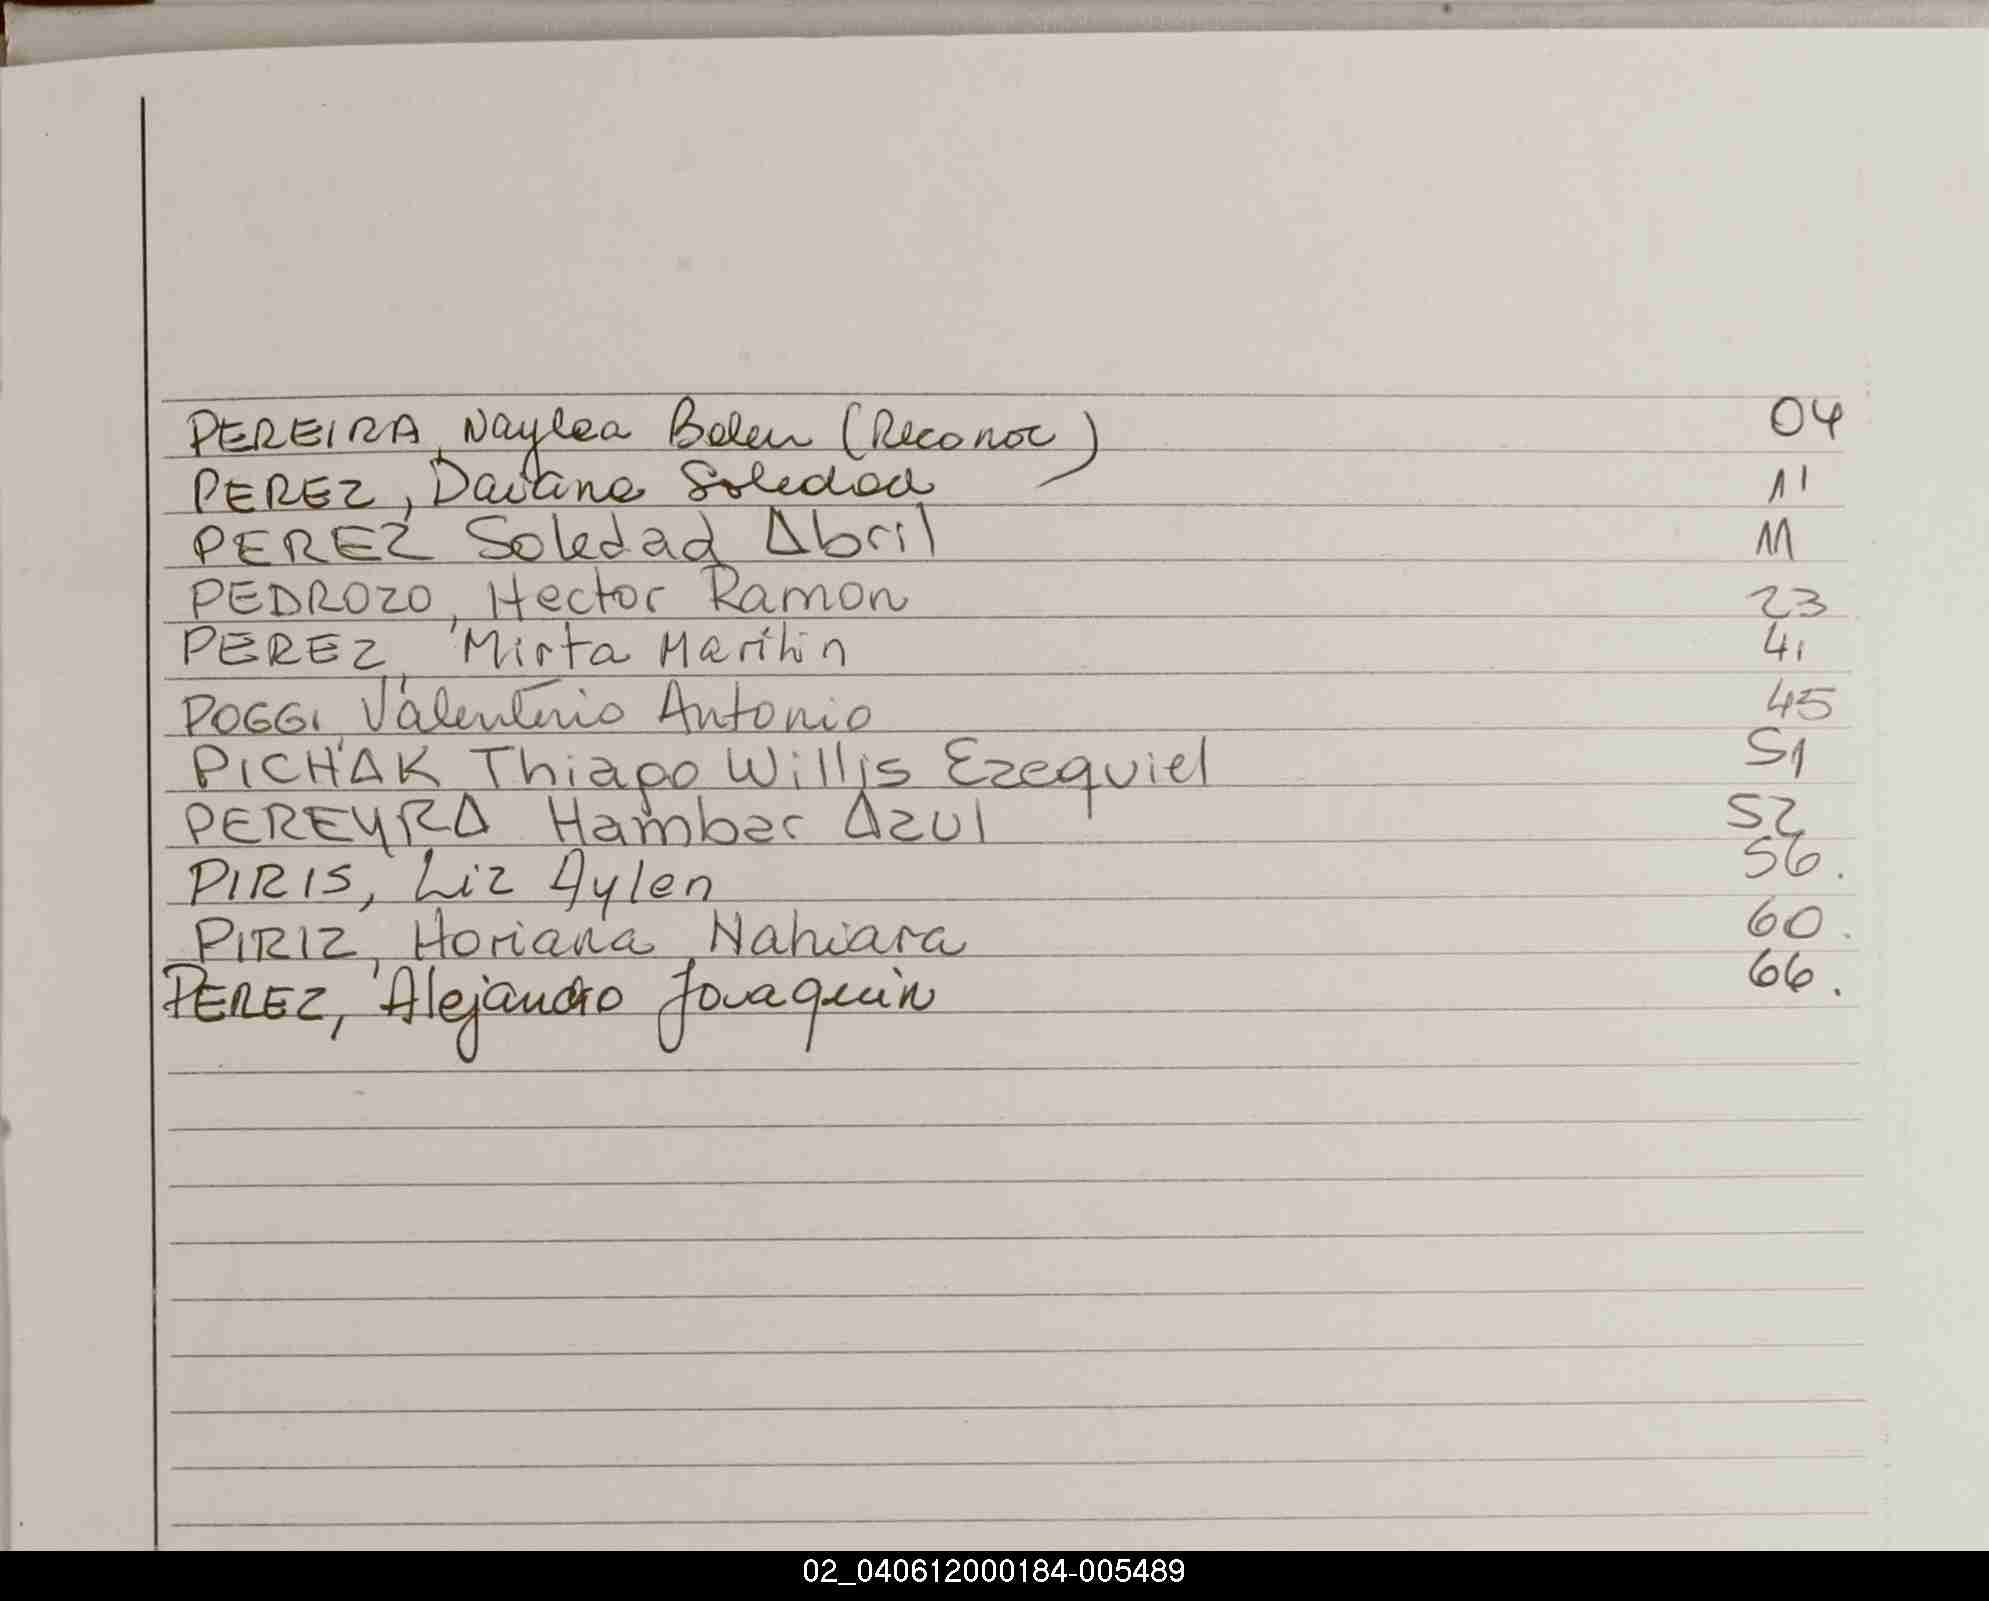 PEREIRA, Naylea Belen (Reconoc) 04
PEREZ, Daiana Soledad 11
PEREZ Soledad Abril 11
PEDROZO, Hector Ramon 23
PEREZ, Mirta Marilin 41
POGGI, Valentino Antonio 45
PICHAK Thiago Willis Ezequiel 51
PEREYRA Hambar Azul 52
PIRIS, Liz Aylen 56.
PIRIZ, Horiana Nahiara 60.
PEREZ, Alejandro Jovaquin 66.
02_040612000184-005489